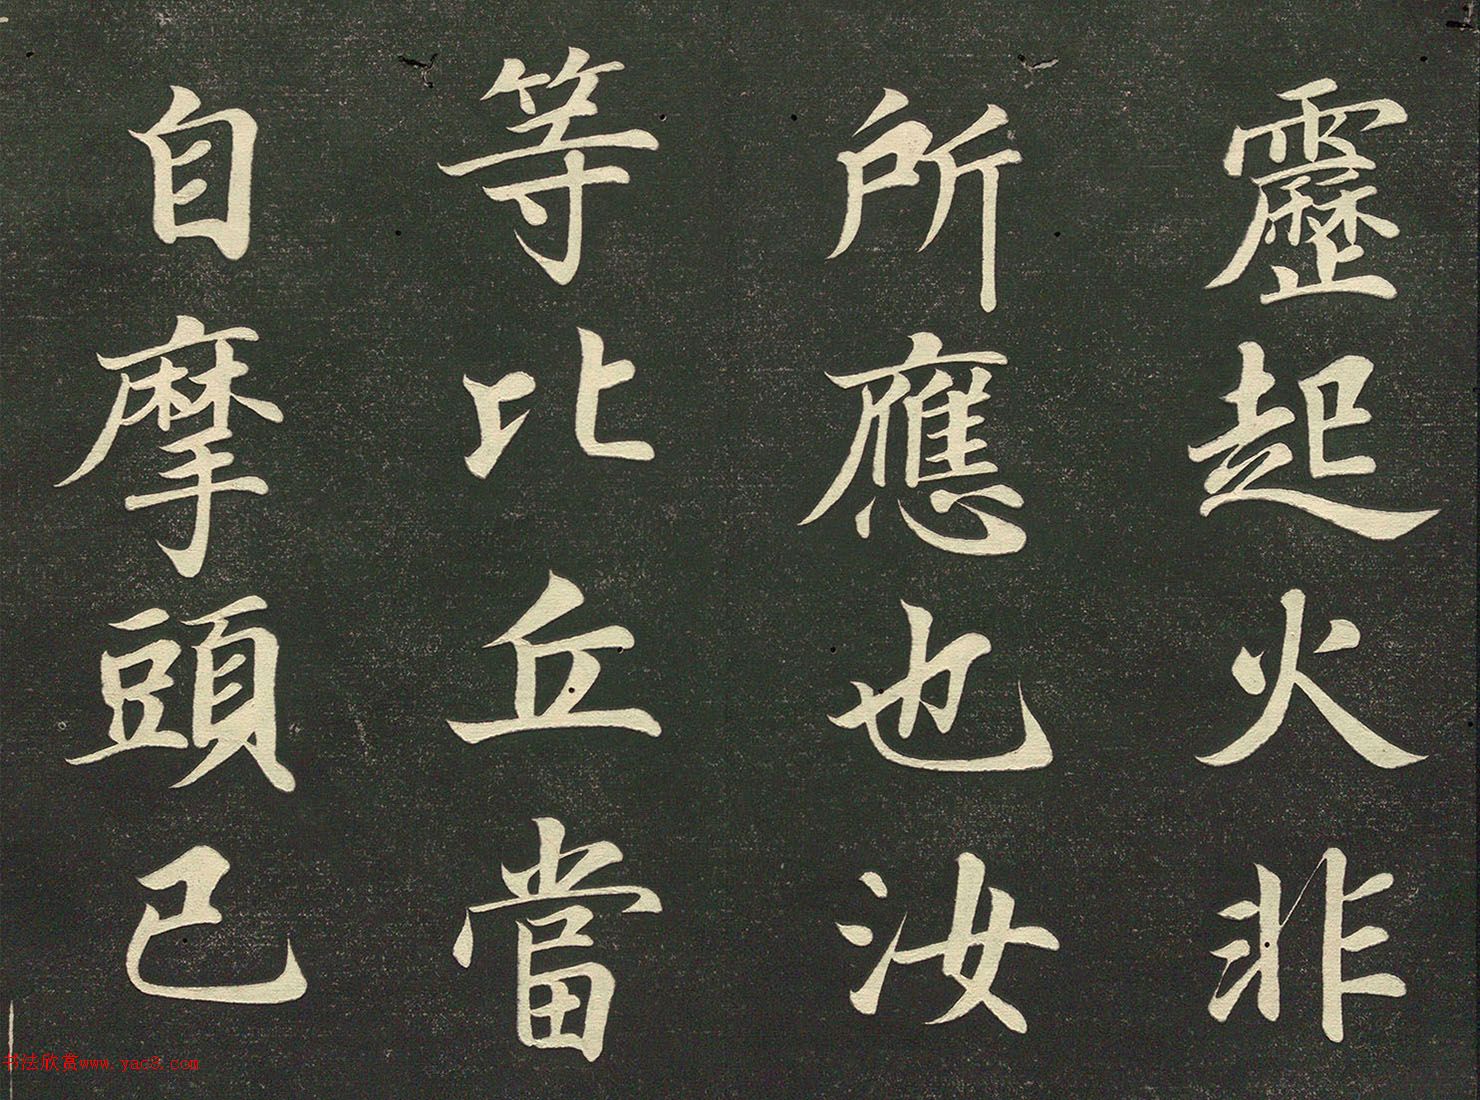 靂起火非
所應也汝
等比丘當
自摩頭已
书法欣赏www.yac8.com